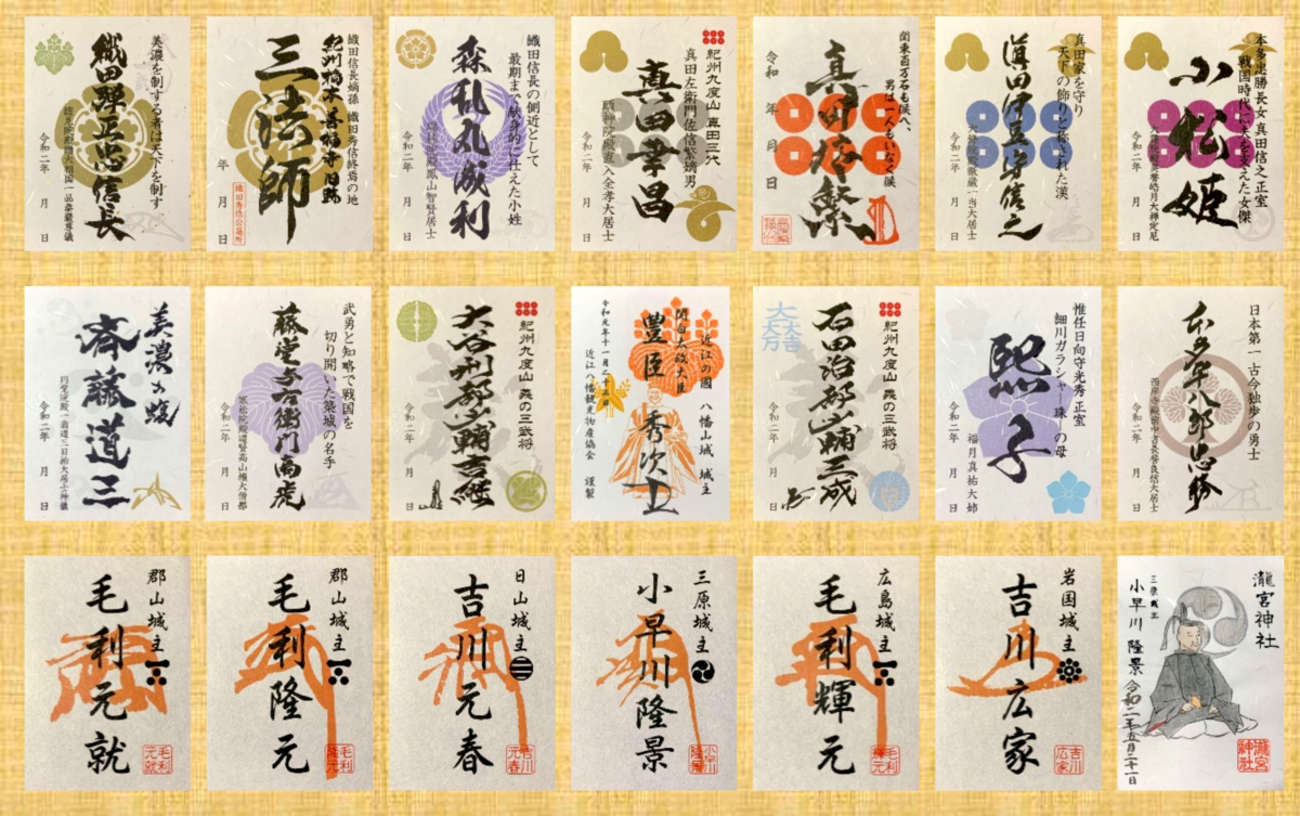 美濃を制する者は天下を制す
織田弾正忠信長
総見院殿贈大相国一品泰巌尊儀
令和二年 月 日
織田信長嫡孫 織田秀信終焉の地
紀州橋本 善福寺 旧跡
三法師
年 月 日
織田秀信公墓所
織田信長の側近として
最期まで献身的に仕えた小姓
森乱丸成利
令和二年 月 日
紀州九度山 真田三代
真田左衛門佐信繁嫡男
真田幸昌
令和 年 月 日
関東百万石も候へ、
男は一人もいなく候
真田信繁
令和 年 月 日
真田家を守り
天下の飾りと称された漢
真田伊豆守信之
令和二年 月 日
本多忠勝長女 真田信之正室
戦国時代に夫を支えた女傑
小松姫
令和二年 月 日
美濃の蝮
斉藤道三
令和二年 月 日
武勇と知略で戦国を
切り開いた築城の名手
藤堂与右衛門高虎
寒松院殿道賢高山権大僧都
令和二年 月 日
紀州九度山 義の三武将
大谷刑部少輔吉継
令和二年 月 日
近江の國 八幡山城 城主
関白太政大臣
豊臣 秀次
令和元年十一月
近江八幡観光物産協会 謹製
紀州九度山 義の三武将
大一大万大吉
石田治部少輔三成
令和二年 月 日
惟任日向守光秀 正室
細川ガラシャ-珠-の母
熙子
福月真祐大姉
令和二年 月 日
日本第一 古今独歩の勇士
本多平八郎忠勝
西岸寺殿前中書長誉良信大居士
令和二年 月 日
郡山城主
毛利元就
毛利元就
郡山城主
毛利隆元
毛利隆元
日山城主
吉川元春
吉川元春
三原城主
小早川隆景
小早川隆景
広島城主
毛利輝元
毛利輝元
岩国城主
吉川広家
吉川広家
瀧宮神社
三原城主
小早川 隆景
令和二年五月二十一日
瀧宮神社